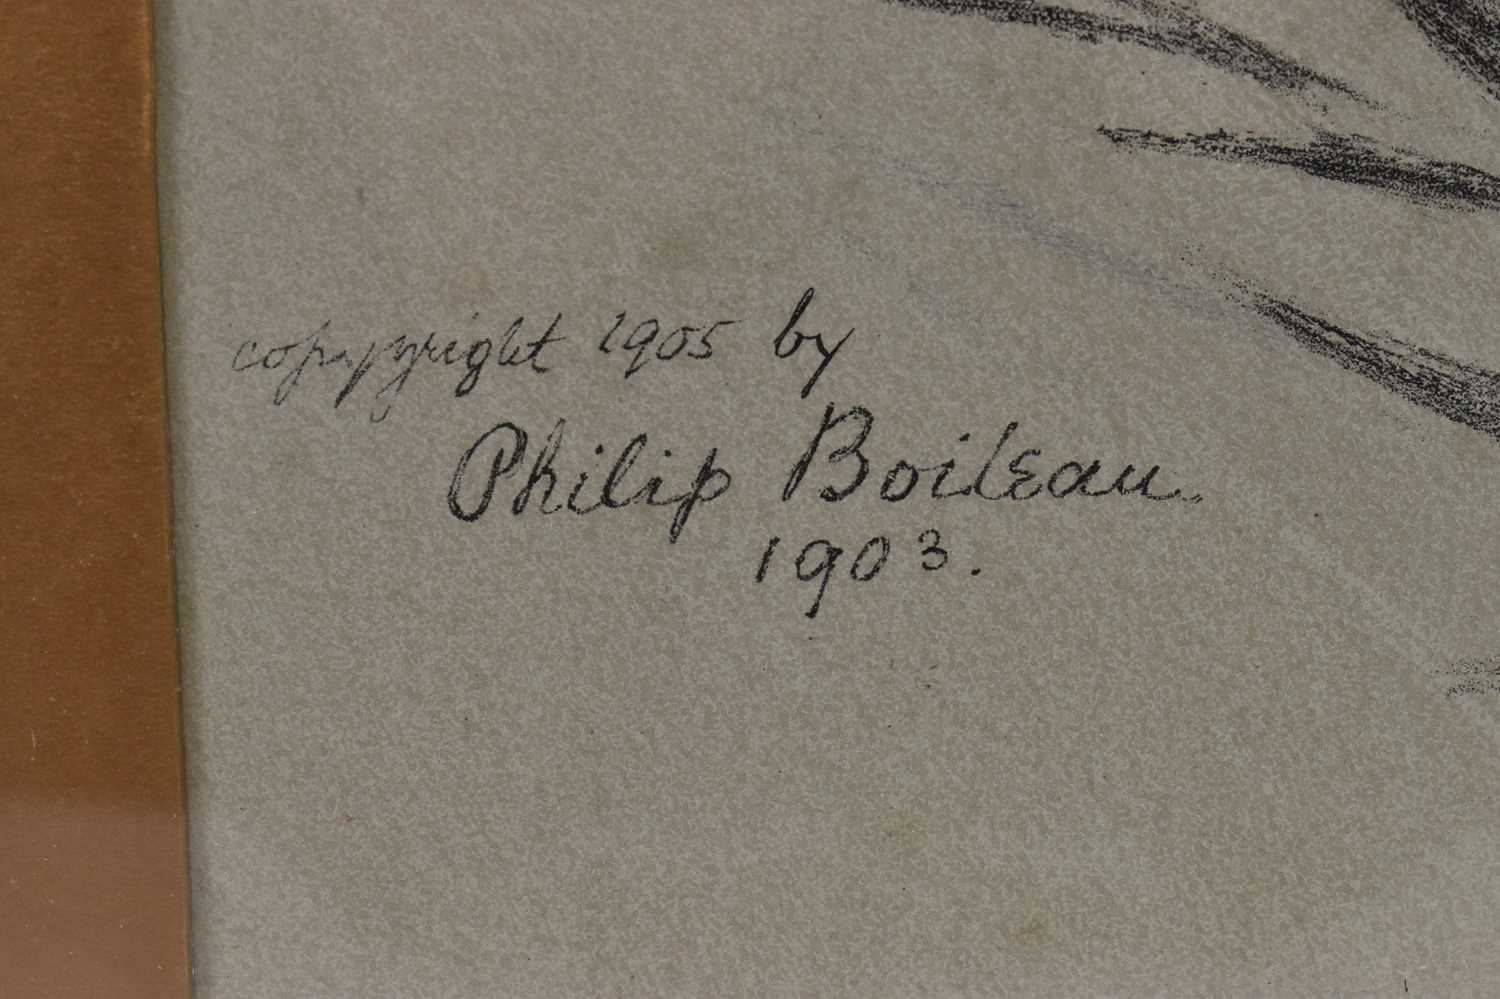 copyright 1905 by
Philip Boileau.
1903.